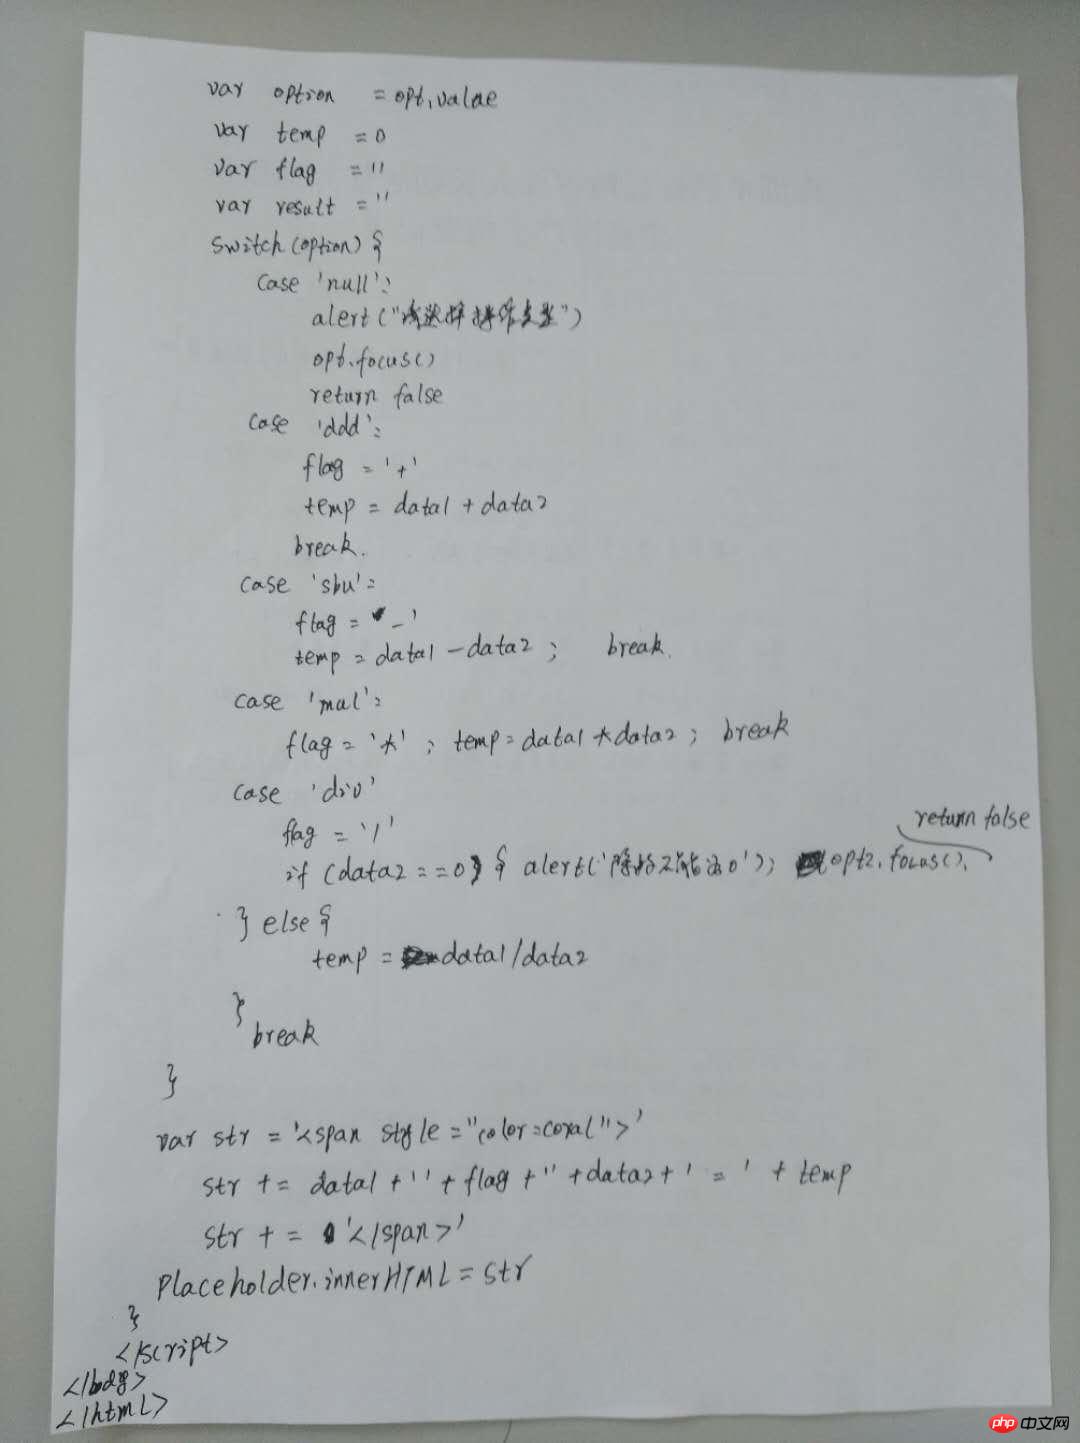 var option = opt.value
var temp = 0
var flag = ''
var result = ''
switch(option) {
case 'null':
alert("请选择操作类型")
opt.focus()
return false
case 'add':
flag = '+'
temp = data1 + data2
break.
case 'sbu':
flag = '-'
temp = data1 - data2 ; break.
case 'mul':
flag = '*' ; temp = data1 * data2 ; break
case 'div'
flag = '/'
return false
if (data2 == 0) { alert('除数不能为0'); opt2.focus();
} else {
temp = data1/data2
}
break
}
var str = '<span style="color:coral">'
str += data1 + '' + flag + '' + data2 + ' = ' + temp
str += '</span>'
Placeholder.innerHTML = str
}
</script>
</body>
</html>
php 中文网